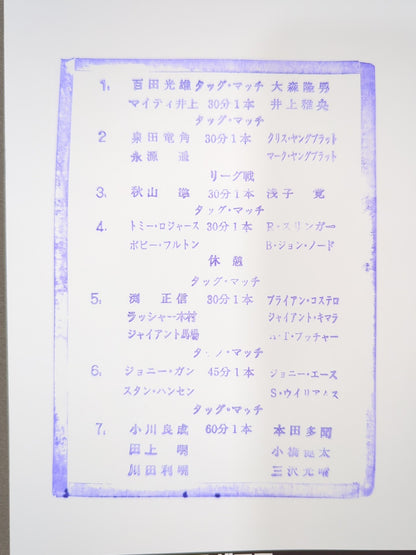 1. 百田光雄 タッグ・マッチ 大森隆男
マイティ井上 30分1本 井上雅央
タッグ・マッチ
2 泉田竜角 30分1本 クリス・ヤングブラット
永源遥 マーク・ヤングブラット
リーグ戦
3. 秋山準 30分1本 浅子覚
タッグ・マッチ
4. トミー・ロジャース 30分1本 R・スリンガー
ボビー・フルトン B・ジョン・ノード
休憩
タッグ・マッチ
5. 渕正信 30分1本 ブライアン・コステロ
ラッシャー木村 ジャイアント・キマラ
ジャイアント馬場 ・T・ブッチャー
タッグ・マッチ
6. ジョニー・ガン 45分1本 ジョニー・エース
スタン・ハンセン S・ウイリアムス
タッグ・マッチ
7. 小川良成 60分1本 本田多聞
田上明 小橋健太
川田利明 三沢光晴